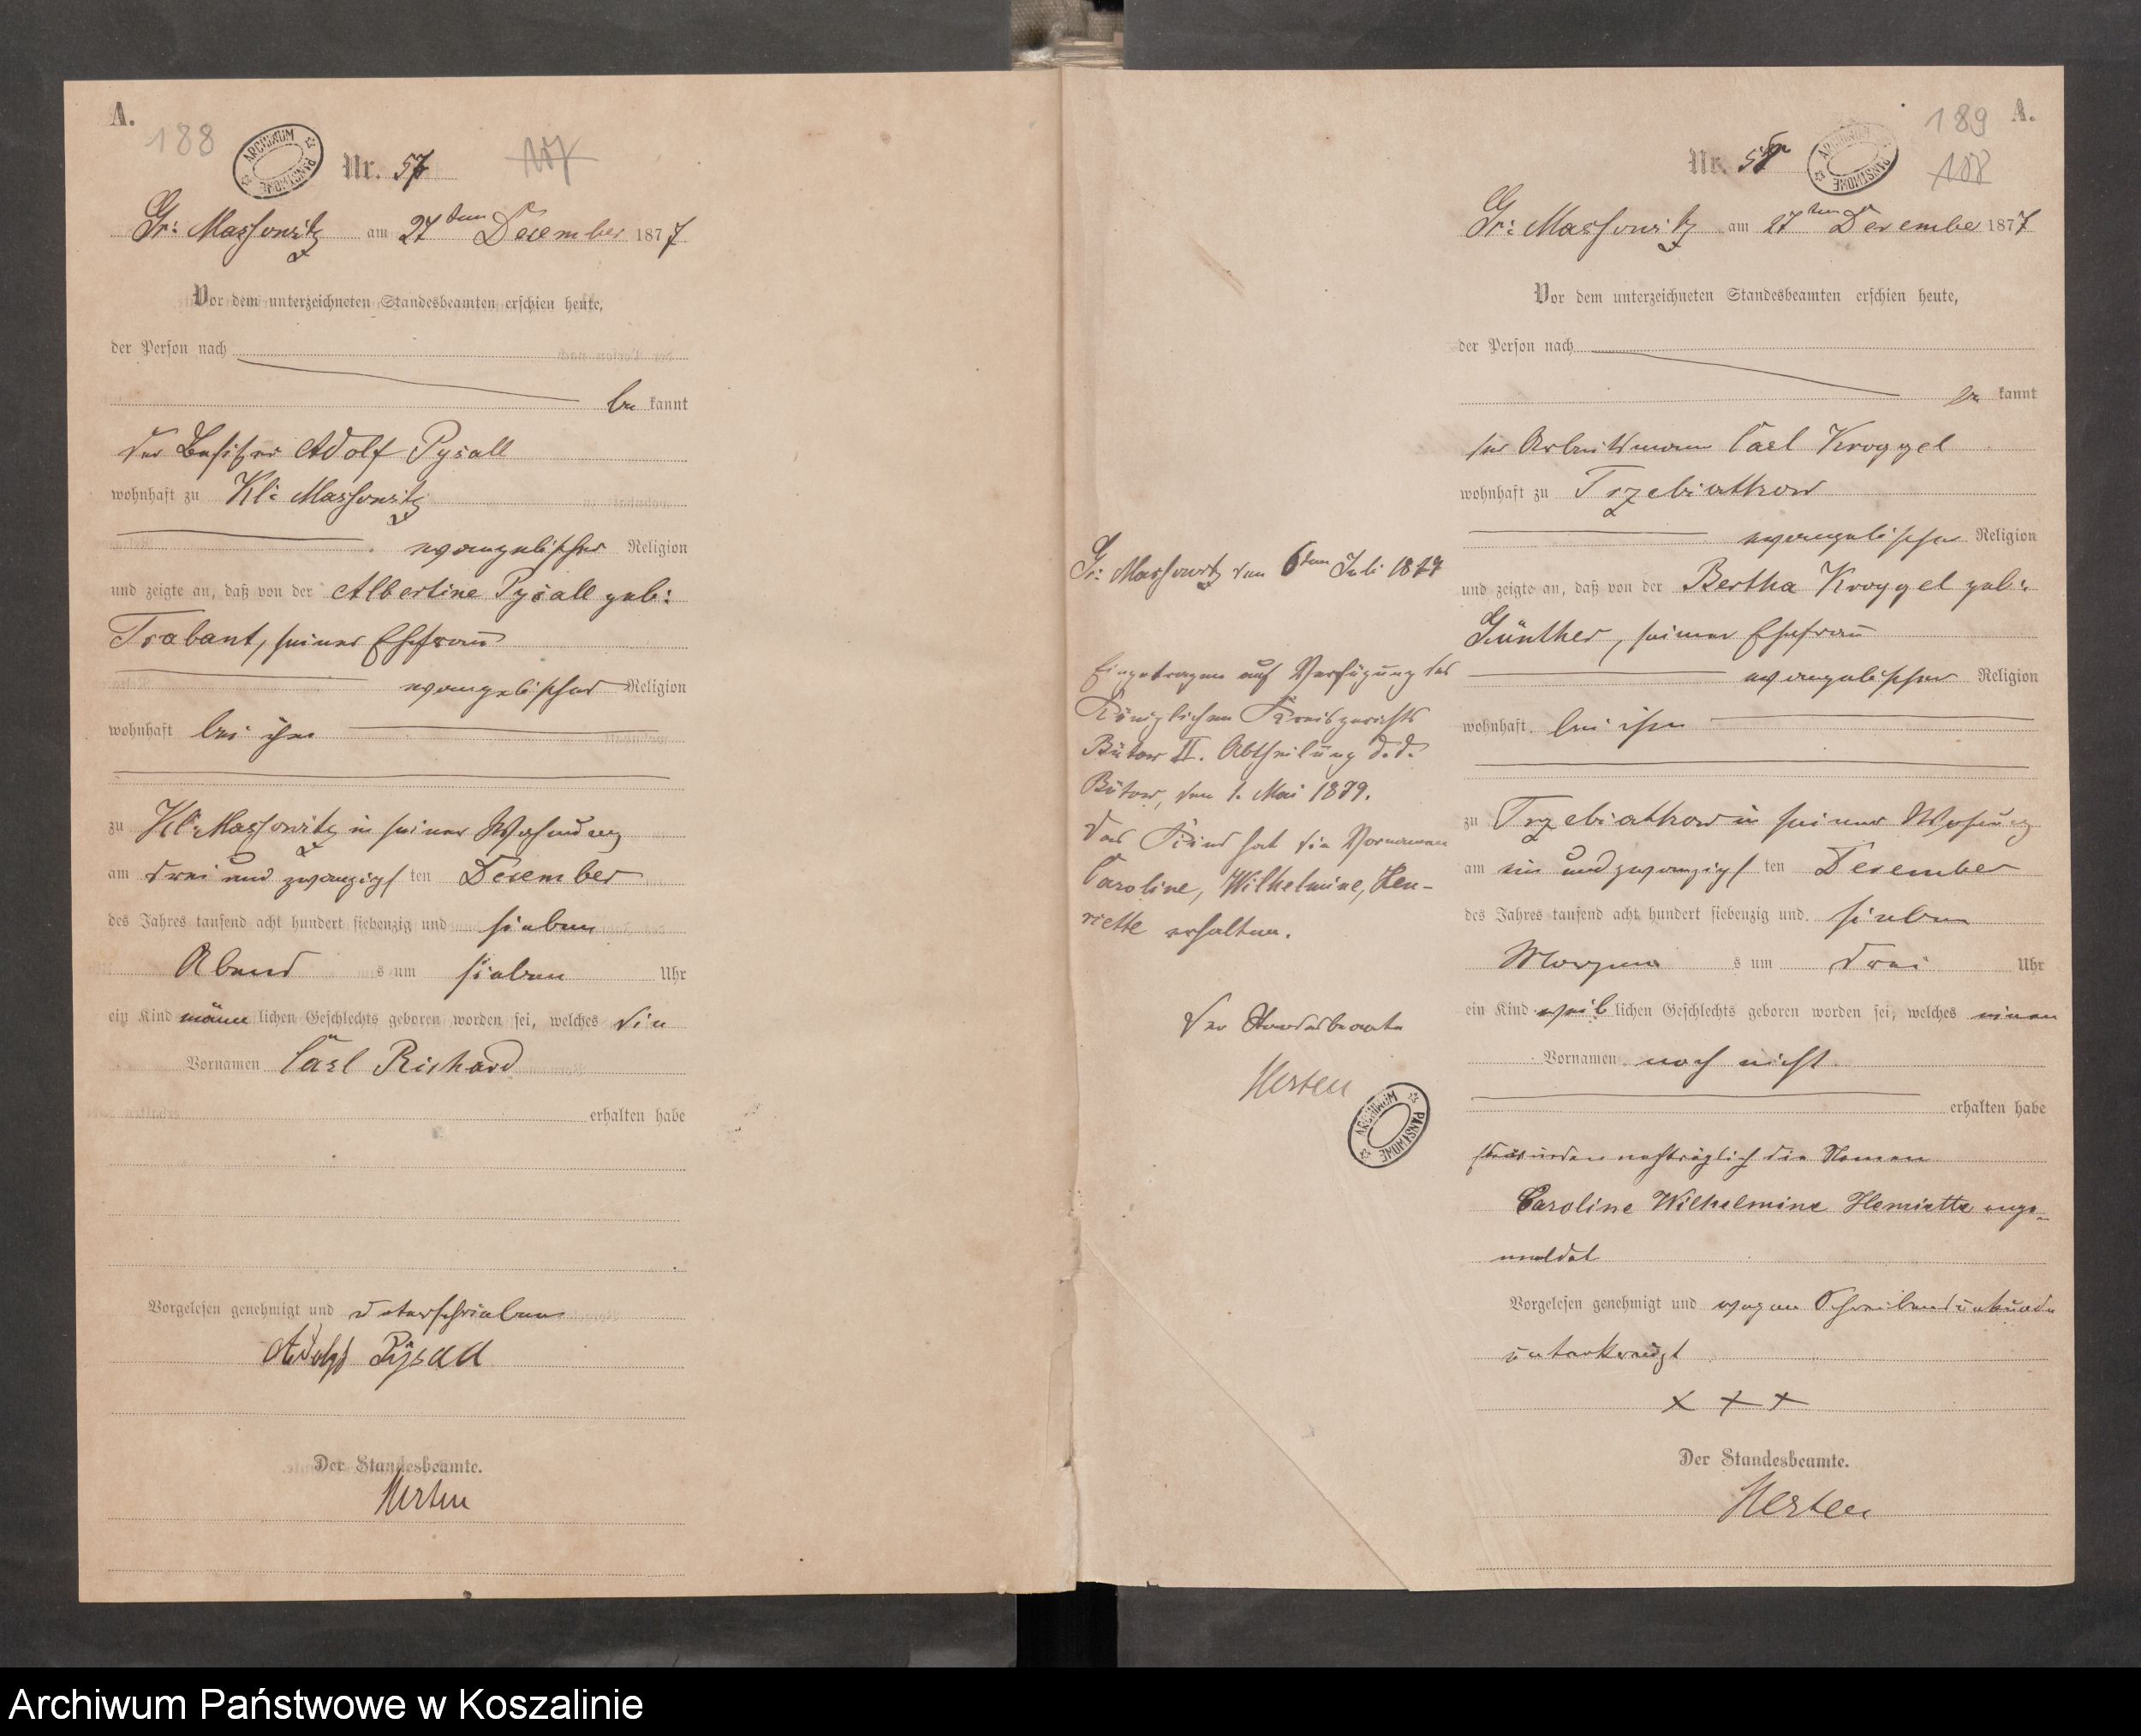 A.
188
ARCHIWUM PAŃSTWOWE
Nr. 57
107
Gr: Massowitz am 27ten December 1877
Vor dem unterzeichneten Standesbeamten erschien heute,
der Person nach
be kannt
der Besitzer Adolf Pysall
wohnhaft zu Kl: Massowitz
evangelischer Religion
und zeigte an, daß von der Albertine Pysall geb:
Trabant, seiner Ehefrau
evangelischer Religion
wohnhaft bei ihm
zu Kl: Massowitz in seiner Wohnung
am drei und zwanzigs ten December
des Jahres tausend acht hundert siebenzig und sieben
Abend s um sieben Uhr
ein Kind männ lichen Geschlechts geboren worden sei, welches die
Vornamen Carl Richard
erhalten habe
Vorgelesen genehmigt und unterschrieben
Adolf Pysall
Der Standesbeamte.
Mersen
Gr: Massowitz den 6ten Juli 1879
Eingetragen auf Verfügung des
Königlichen Kreisgerichts
Bütow II. Abtheilung d. d.
Bütow, den 1. Mai 1879.
Das Kind hat die Vornamen
Caroline, Wilhelmine, Hen-
riette erhalten.
Der Standesbeamte
Mersen
ARCHIWUM PAŃSTWOWE
189 A.
ARCHIWUM PAŃSTWOWE
Nr. 58
108
Gr: Massowitz am 27ten Decembe 1877
Vor dem unterzeichneten Standesbeamten erschien heute,
der Person nach
be kannt
der Arbeitsmann Carl Kroggel
wohnhaft zu Trzebiatkow
evangelischer Religion
und zeigte an, daß von der Bertha Kroggel geb:
Günther, seiner Ehefrau
evangelischer Religion
wohnhaft bei ihm
zu Trzebiatkow in seiner Wohnung
am ein und zwanzigs ten December
des Jahres tausend acht hundert siebenzig und sieben
Morgen s um drei Uhr
ein Kind weib lichen Geschlechts geboren worden sei, welches einen
Vornamen noch nicht
erhalten habe
nachträglich die Namen
Caroline Wilhelmine Henriette ange-
meldet
Vorgelesen genehmigt und wegen Schreibensunkunde
unterkreuzt
x x x
Der Standesbeamte.
Mersen
Archiwum Państwowe w Koszalinie